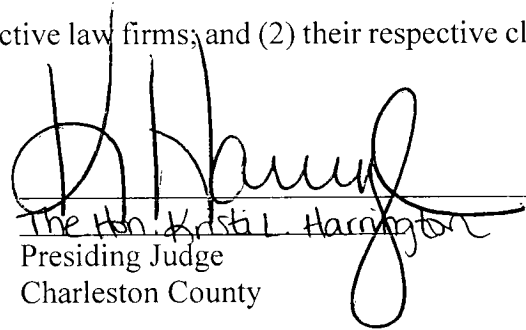 ctive law firms; and (2) their respective cl
The Hon. Kristi L. Harrington
Presiding Judge
Charleston County